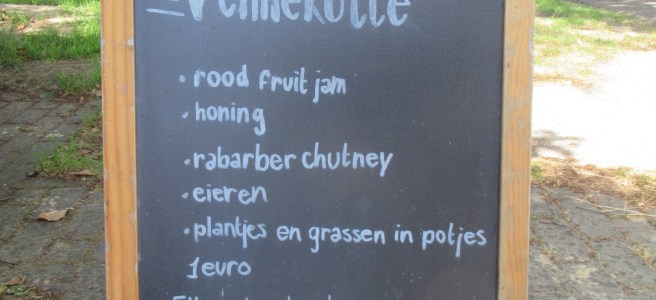 Vennekotte
• rood fruit jam
• honing
• rabarber chutney
• eieren
• plantjes en grassen in potjes
1 euro